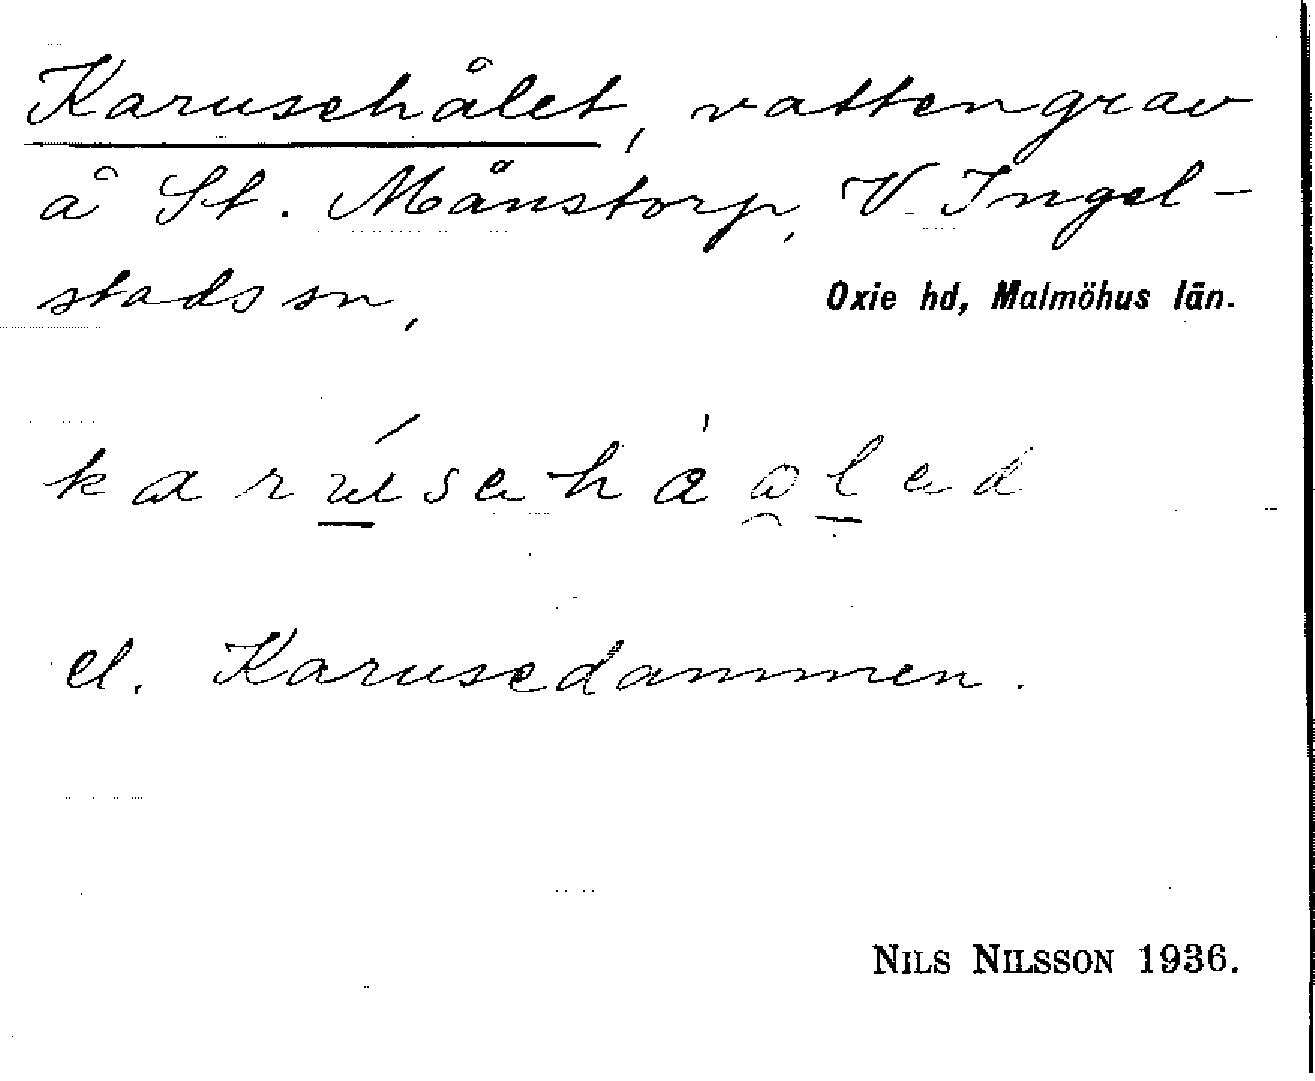 Karusehålet, vattengrav
å St. Månstorp, V. Ingel-
stads sn, Oxie hd, Malmöhus län.
karúsehàoled
el. Karusedammen.
NILS NILSSON 1936.